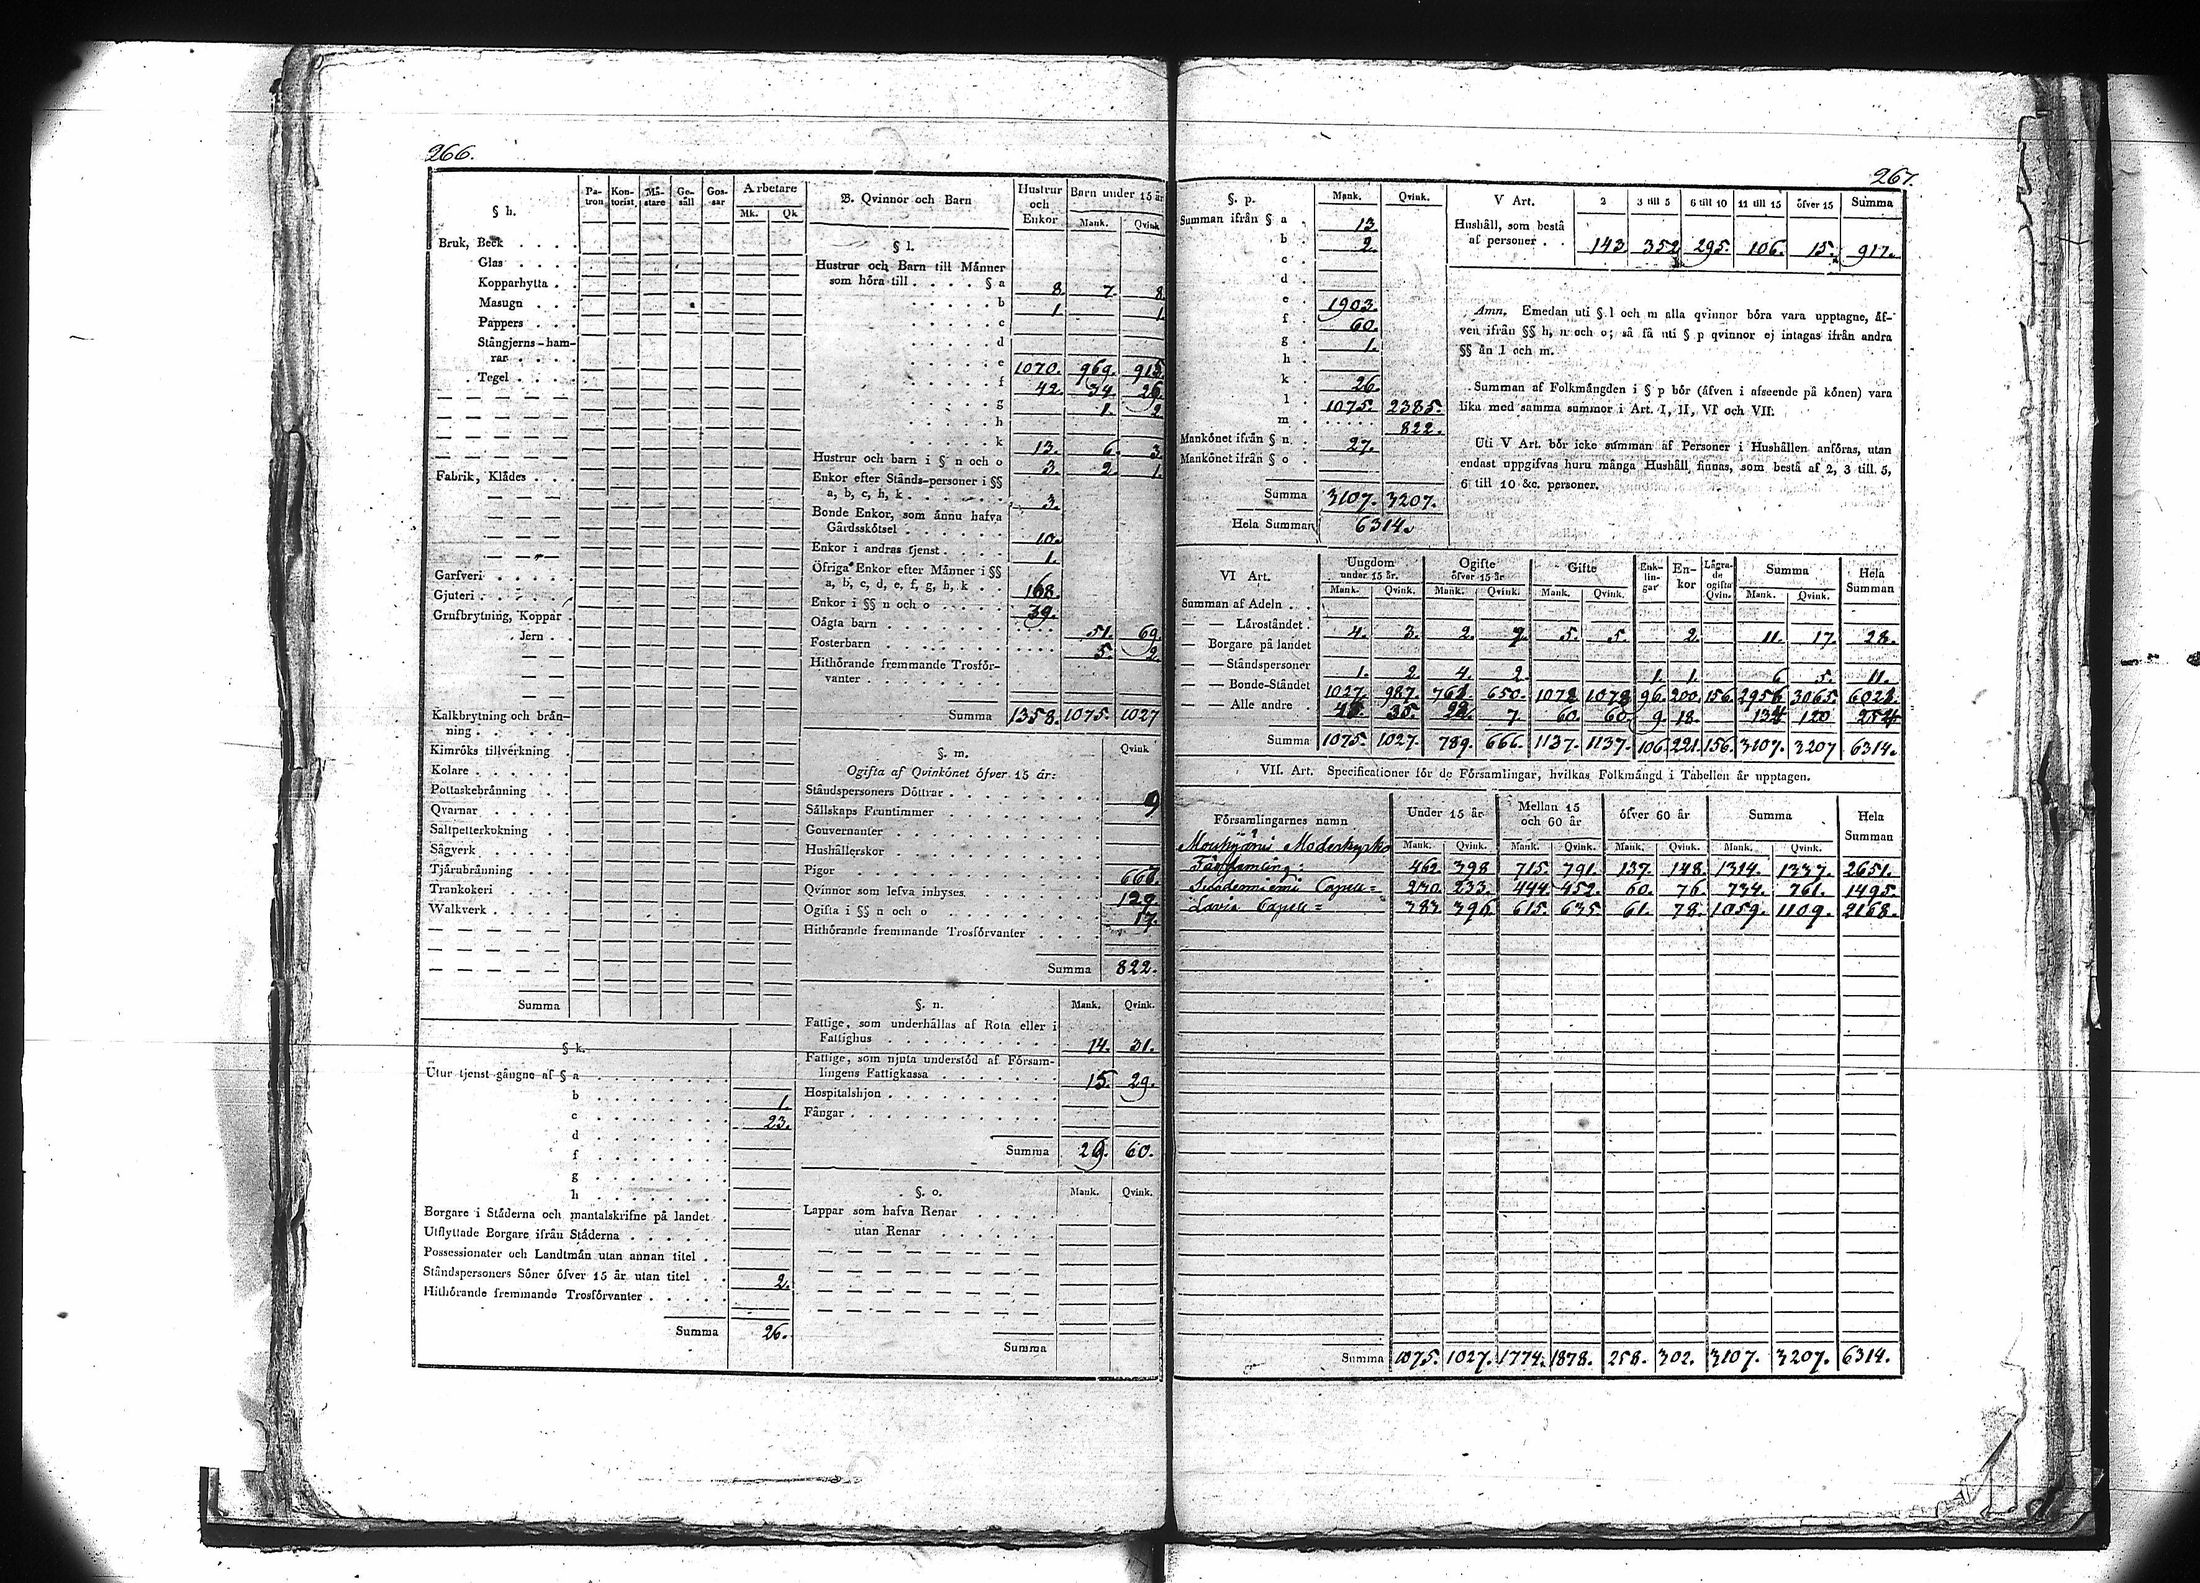 266.
§ h. Pa-tron Kon-torist Mä-stare Ge-säll Gos-sar Arbetare
Mk. Qk
Bruk, Beck . . . .
Glas . . . .
Kopparhytta . .
Masugn . . .
Pappers . . .
Stångjerns-ham-
rar . . . .
Tegel . . . .
Fabrik, Klädes . . .
Garfveri . . . . .
Gjuteri . . . . .
Grufbrytning, Koppar
Jern . .
Kalkbrytning och brån-
ning . . . . . .
Kimröks tillverkning
Kolare . . . . . .
Pottaskebränning . .
Qvarnar . . . . .
Saltpetterkokning . .
Sågverk . . . . .
Tjärubränning . . .
Trankokeri . . . .
Walkverk . . . . .
Summa
§ k.
Utur tjenst gångne af § a . . . . . . .
b . . . . . . . 1.
c . . . . . . . 23.
d . . . . . . .
f . . . . . . .
g . . . . . . .
h . . . . . . .
Borgare i Städerna och mantalskrifne på landet .
Utflyttade Borgare ifrån Städerna . . . . . .
Possessionater och Landtmän utan annan titel . .
Ståndspersoners Söner öfver 15 år utan titel . . 2.
Hithörande fremmande Trosförvanter . . . . .
Summa 26.
B. Qvinnor och Barn Hustrur och Enkor Barn under 15 år
Mank. Qvink
§ l.
Hustrur och Barn till Männer
som höra till . . . . § a 8. 7. 8.
b 1. 1.
c
d
e 1070. 969. 915.
f 42. 34. 26.
g 1. 2.
h
k 13. 6. 3.
Hustrur och barn i § n och o 3. 2. 1.
Enkor efter Stånds-personer i §§
a, b, c, h, k . . . . . . 3.
Bonde Enkor, som ännu hafva
Gårdsskötsel . . . . . . 10.
Enkor i andras tjenst . . . . 1.
Öfriga Enkor efter Männer i §§
a, b, c, d, e, f, g, h, k . . 168.
Enkor i §§ n och o . . . . . 39.
Oägta barn . . . . . . . 51. 69.
Fosterbarn . . . . . . . 5. 2.
Hithörande fremmande Trosför-
vanter . . . . . . . .
Summa 1358. 1075. 1027
§. m. Qvink
Ogifta af Qvinkönet öfver 15 år:
Ståndspersoners Döttrar . . . . . . . . 9
Sällskaps Fruntimmer . . . . . . . . .
Gouvernanter . . . . . . . . . . .
Hushållerskor . . . . . . . . . . .
Pigor . . . . . . . . . . . . . 667.
Qvinnor som lefva inhyses . . . . . . . 129.
Ogifta i §§ n och o . . . . . . . . . 17.
Hithörande fremmande Trosförvanter . . . .
Summa 822.
§. n. Mank. Qvink.
Fattige, som underhållas af Rota eller i
Fattighus . . . . . . . . . . 14. 31.
Fattige, som njuta understöd af Försam-
lingens Fattigkassa . . . . . . . 15. 29.
Hospitalshjon . . . . . . . . . .
Fångar . . . . . . . . . . . .
Summa 29. 60.
§. o. Mank. Qvink.
Lappar som hafva Renar . . . . .
utan Renar . . . . . . .
Summa
267.
§. p. Mank. Qvink.
Summan ifrån § a . 13
b . 2.
c .
d .
e . 1903.
f . 60.
g . 1.
h .
k . 26.
l . 1075. 2385.
m . . . . . . 822.
Mankönet ifrån § n . 27.
Mankönet ifrån § o .
Summa 3107. 3207.
Hela Summan 6314.
V Art. 2 3 till 5 6 till 10 11 till 15 öfver 15 Summa
Hushåll, som bestå
af personer . . 143 352 295. 106. 15. 917.
Anm. Emedan uti § l och m alla qvinnor böra vara upptagne, äf-
ven ifrån §§ h, n och o; så få uti § p qvinnor ej intagas ifrån andra
§§ än l och m.
Summan af Folkmängden i § p bör (äfven i afseende på könen) vara
lika med samma summor i Art. I, II, VI och VII.
Uti V Art. bör icke summan af Personer i Hushållen anföras, utan
endast uppgifvas huru många Hushåll finnas, som bestå af 2, 3 till 5,
6 till 10 &c. personer.
VI Art. Ungdom under 15 år. Ogifte öfver 15 år Gifte Enk-lin-gar En-kor Lägra-de ogifta Qvin. Summa Hela Summan
Mank. Qvink. Mank. Qvink. Mank. Qvink. Mank. Qvink.
Summan af Adeln . .
— — Läroståndet . 4. 3. 2. 7. 5. 5. 2. 11. 17. 28.
— Borgare på landet
— — Ståndspersoner 1. 2. 4. 2. 1. 1. 6. 5. 11.
— — Bonde-Ståndet 1027. 987. 650. 1072 1072 96. 200. 156. 2956 3065. 6021.
— — Alle andre . 35. 7. 60. 60. 9. 18. 134 120 254
Summa 1075. 1027. 789. 666. 1137. 1137. 106. 221. 156. 3107. 3207 6314.
VII. Art. Specificationer för de Församlingar, hvilkas Folkmängd i Tabellen är upptagen.
Församlingarnes namn Under 15 år Mellan 15 och 60 år öfver 60 år Summa Hela Summan
Mank. Qvink. Mank. Qvink. Mank. Qvink. Mank. Qvink.
Mouhijärvi Moderkyrko
Församling: 462 398 715. 791. 137. 148. 1314. 1337. 2651.
Suodenniemi Capell = 230. 233. 444. 452. 60. 76. 734. 761. 1495.
Lavia Capell = 383. 396. 615. 635 61. 78. 1059. 1109. 2168.
Summa 1075. 1027. 1774. 1878. 258. 302. 3107. 3207. 6314.